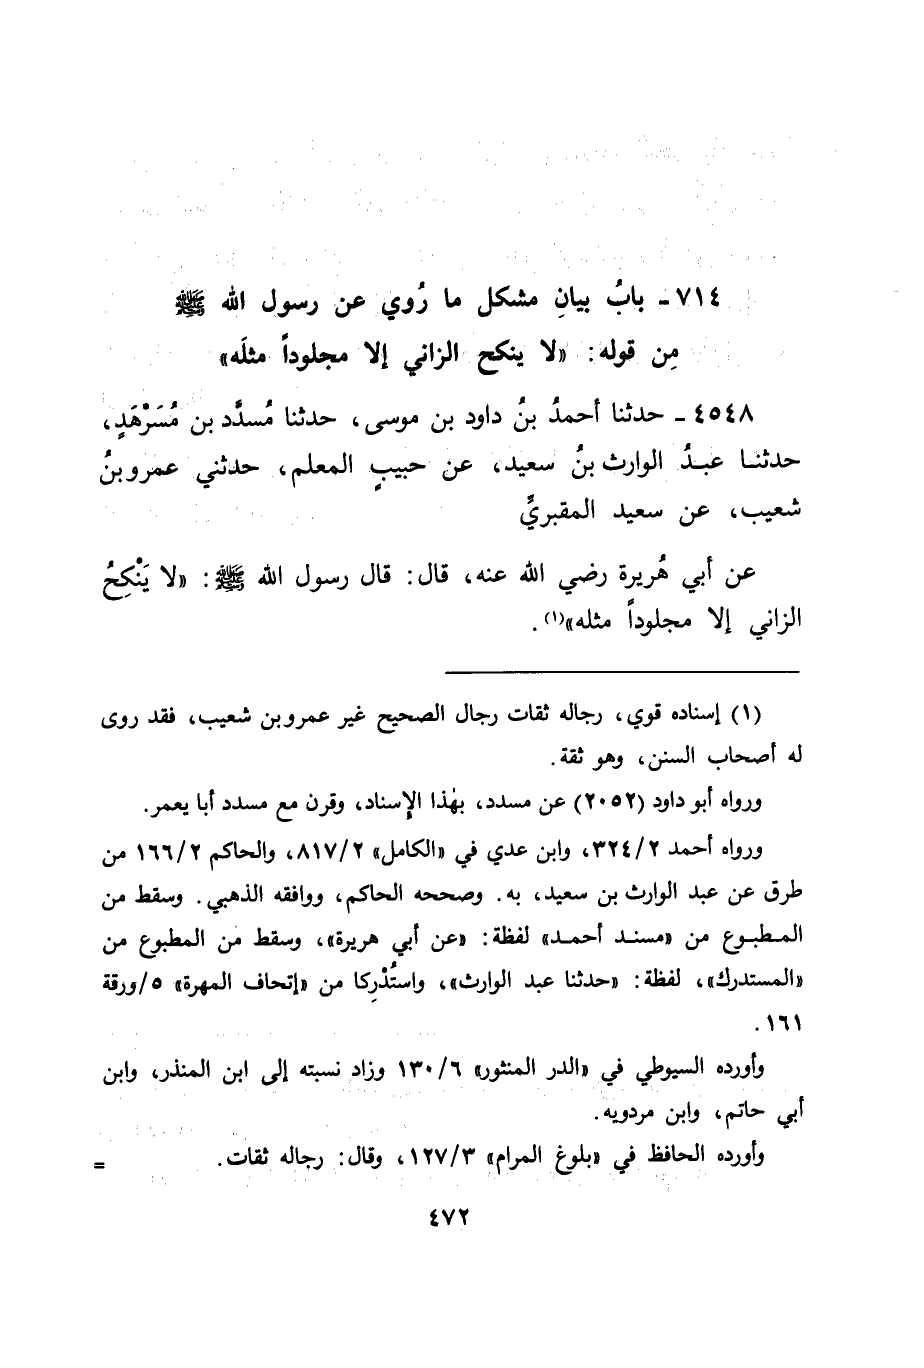 ٧١٤ - بابُ بيانِ مشكل ما رُوي عن رسول الله ﷺ
مِن قوله: «لا ينكح الزاني إلا مجلوداً مثلَه»
٤٥٤٨ - حدثنا أحمدُ بنُ داود بن موسى، حدثنا مُسدَّد بن مُسَرْهَدٍ،
حدثنا عبدُ الوارث بنُ سعيد، عن حبيبٍ المعلم، حدثني عمرو بنُ
شعيب، عن سعيد المقبريِّ
عن أبي هُريرة رضي الله عنه، قال: قال رسول الله ﷺ: «لا يَنْكِحُ
الزاني إلا مجلوداً مثله»(١).
(١) إسناده قوي، رجاله ثقات رجال الصحيح غير عمرو بن شعيب، فقد روى
له أصحاب السنن، وهو ثقة.
ورواه أبو داود (٢٠٥٢) عن مسدد، بهٰذا الإِسناد، وقرن مع مسدد أبا يعمر.
ورواه أحمد ٣٢٤/٢، وابن عدي في «الكامل» ٨١٧/٢، والحاكم ١٦٦/٢ من
طرق عن عبد الوارث بن سعيد، به. وصححه الحاكم، ووافقه الذهبي. وسقط من
المطبوع من «مسند أحمد» لفظة: «عن أبي هريرة»، وسقط من المطبوع من
«المستدرك»، لفظة: «حدثنا عبد الوارث»، واستُدْرِكا من «إتحاف المهرة» ٥/ورقة
١٦١.
وأورده السيوطي في «الدر المنثور» ١٣٠/٦ وزاد نسبته إلى ابن المنذر، وابن
أبي حاتم، وابن مردويه.
وأورده الحافظ في «بلوغ المرام» ١٢٧/٣، وقال: رجاله ثقات. =
٤٧٢